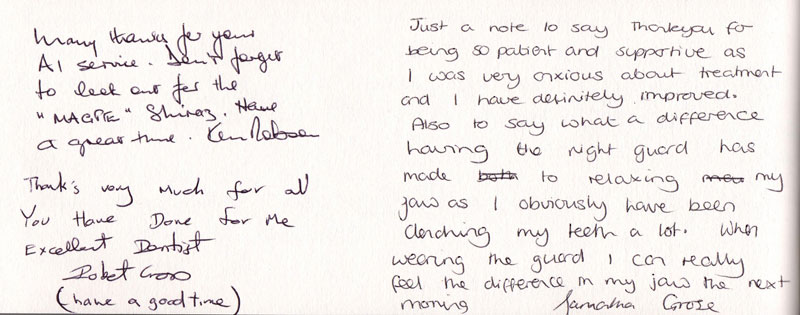 Many thanks for your
A1 service. Don't forget
to look out for the
"MAGPIE" Shiraz. Have
a great time. Ken
Thank's very Much for all
You Have Done for Me
Excellent Dentist
Robet
(have a good time)
Just a note to say Thankyou for
being so patient and supportive as
I was very anxious about treatment
and I have definitely improved.
Also to say what a difference
having the night guard has
made both to relaxing my
jaw as I obviously have been
clenching my teeth a lot. When
wearing the guard I can really
feel the difference in my jaw the next
morning Samantha Grose